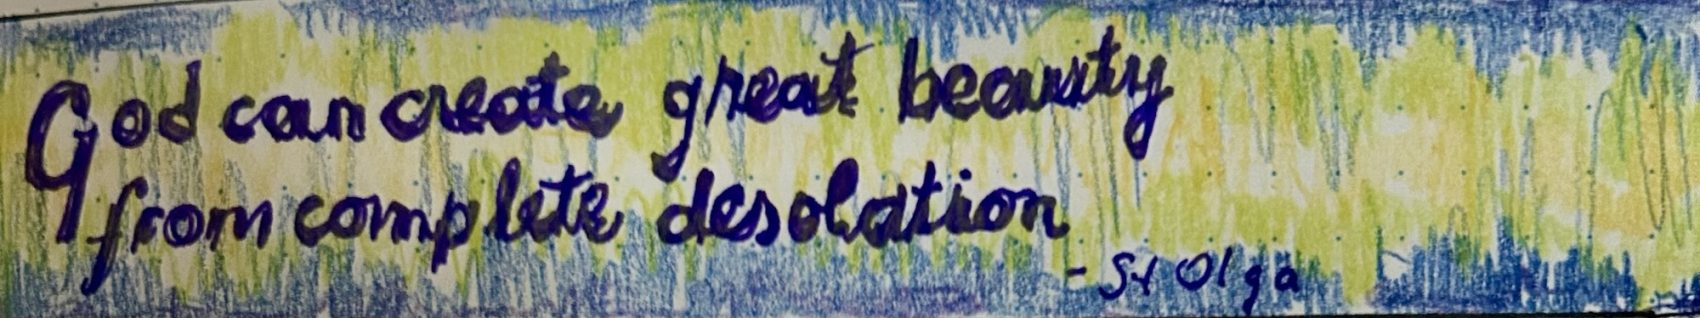 God can create great beauty
from complete desolation
- St Olga